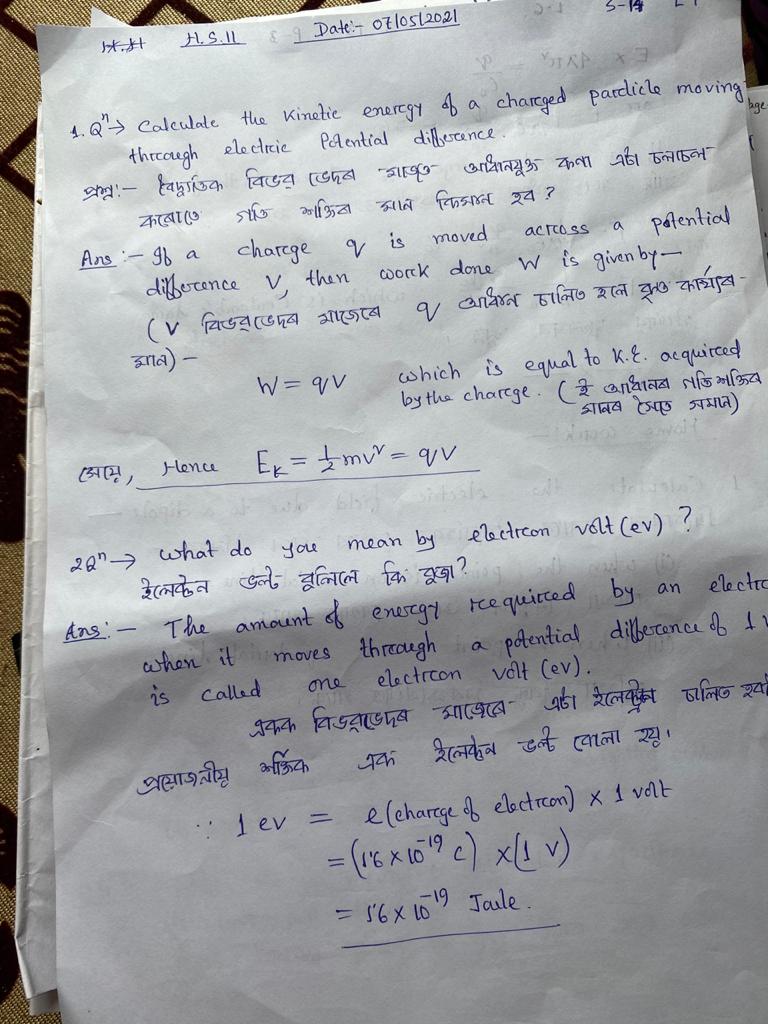 H.S.II Date:- 07/05/2021
1. Qⁿ→ Calculate the Kinetic energy of a charged particle moving
through electric Potential difference.
প্ৰশ্ন:- বৈদ্যুতিক বিভৱ ভেদৰ মাজেৰে আধানযুক্ত কনা এটা চলাচল
কৰোতে গতি শক্তিৰ মান কিমান হব ?
Ans :- If a charge q is moved across a potential
difference V, then work done W is given by—
(V বিভৱভেদৰ মাজেৰে q আধান চালিত হলে কৃত কাৰ্য্যৰ-
মান) –
W = qV which is equal to K.E. acquired
by the charge. (ই আধানৰ গতি শক্তিৰ
মানৰ সৈতে সমান)
সেয়ে, Hence E_k = ½mv² = qV
2Qⁿ→ What do you mean by electron volt (ev) ?
ইলেকট্ৰন ভল্ট বুলিলে কি বুজা?
Ans:- The amount of energy required by an electro
when it moves through a potential difference of 1 v
is called one electron volt (ev).
একক বিভৱভেদৰ মাজেৰে এটা ইলেকট্ৰন চালিত হব
প্ৰয়োজনীয় শক্তিক এক ইলেকট্ৰন ভল্ট বোলা হয়।
∵ 1 ev = e(charge of electron) × 1 volt
= (1.6 × 10⁻¹⁹ C) × (1 V)
= 1.6 × 10⁻¹⁹ Joule.